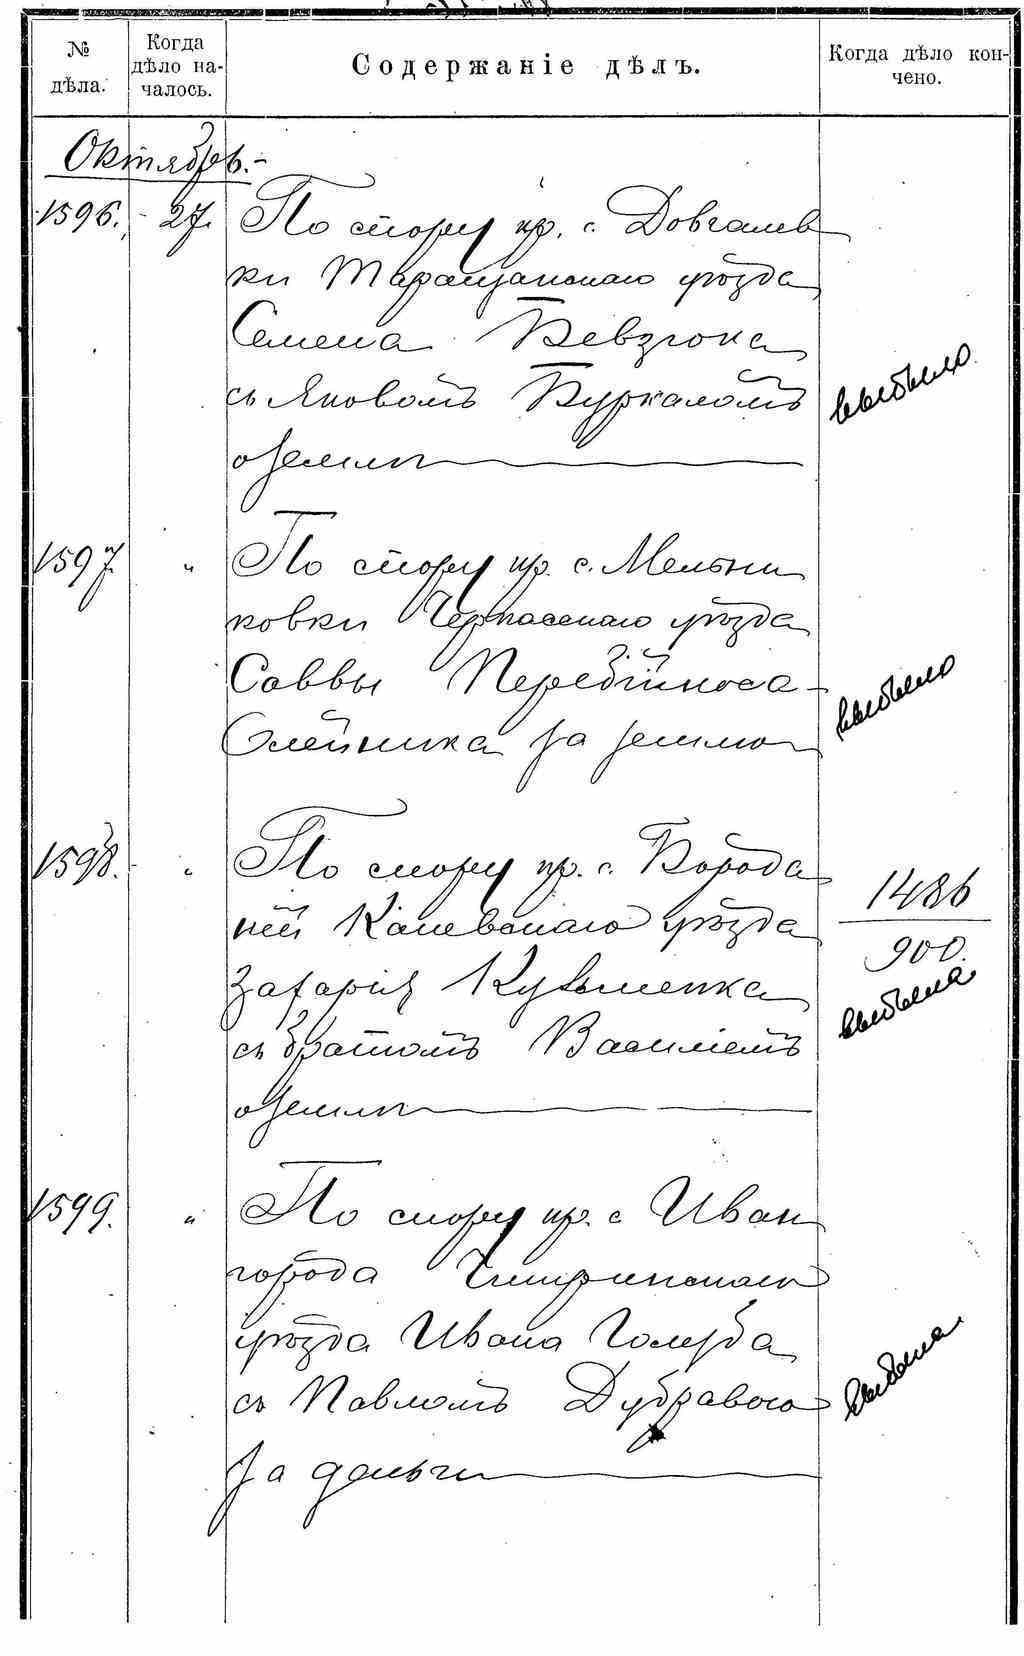 № дѣла.
Когда дѣло на-чалось.
Содержаніе дѣлъ.
Когда дѣло кон-чено.
Октябрь.-
1596. 27. По спору кр. с. Довгалев
ки Таращанскаго уѣзда
Семена Бевзюка
съ Яковомъ Буркаломъ
о земли
выбыло
1597 " По спору кр. с. Мельни
ковки Черкасскаго уѣзда
Саввы Перебійноса-
Олейника за землю
выбыло
1598. " По спору кр. с. Борода
ней Каневскаго уѣзда
Захарія Кузьменка
съ братомъ Василіемъ
о земли
1486
900.
выбыла
1599. " По спору кр. с Иван
города Чигиринскаго
уѣзда Ивана Голуба
съ Павломъ Дубравою
за деньги
выбыла